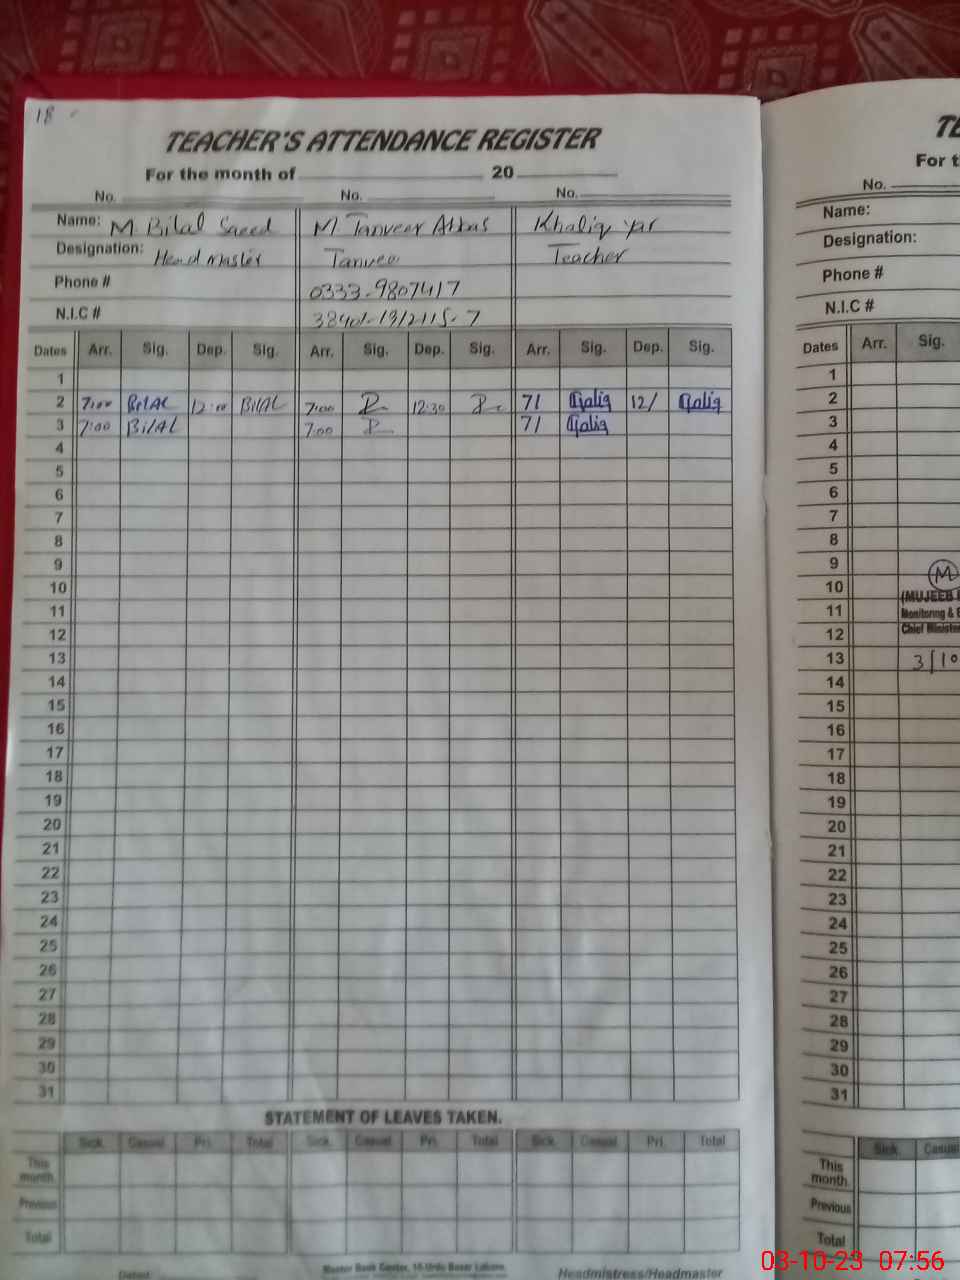 18
TEACHER'S ATTENDANCE REGISTER
For the month of 20
No. No. No.
Name: M. Bilal Saeed M. Tanveer Abbas Khaliq yar
Designation: Head Master Teacher
Phone # 0333-9807417
N.I.C #
Dates Arr. Sig. Dep. Sig. Arr. Sig. Dep. Sig. Arr. Sig. Dep. Sig.
1
2 7:00 BilAL 12:00 BilAL 7:00 12:30 7/ 12/
3 7:00 BilAL 7:00 7/
4
5
6
7
8
9
10
11
12
13
14
15
16
17
18
19
20
21
22
23
24
25
26
27
28
29
30
31
STATEMENT OF LEAVES TAKEN.
Sick. Casual Pri. Total Sick. Casual Pri. Total Sick. Casual Pri. Total
This month.
Previous
Total
Master Book Center, 16-Urdu Bazar Lahore.
Headmistress/Headmaster
TE
For t
No.
Name:
Designation:
Phone #
N.I.C #
Dates Arr. Sig.
1
2
3
4
5
6
7
8
9
10
11
12
13
14
15
16
17
18
19
20
21
22
23
24
25
26
27
28
29
30
31
M
(MUJEEB
Monitoring & E
Chief Minister
3/10
Sick Casual
This month.
Previous
Total
03-10-23 07:56